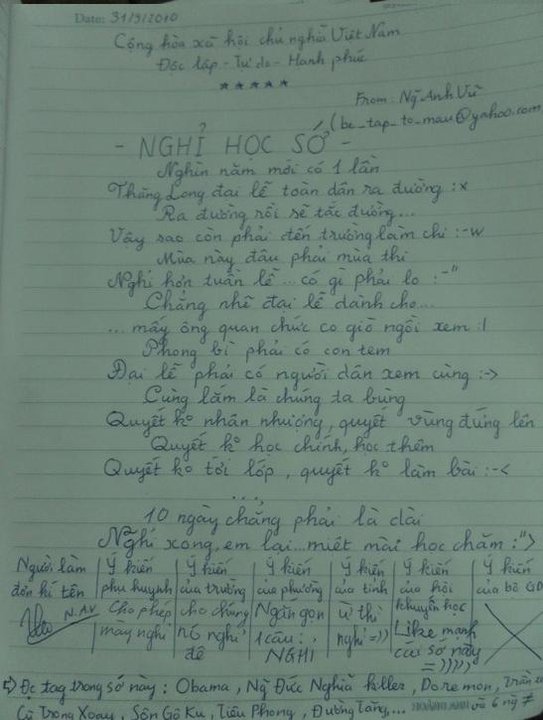 Date: 31/9/2010
Cộng hòa xã hội chủ nghĩa Việt Nam
Độc lập - Tự do - Hạnh phúc
*****
From: Ng̃ Anh Vũ
(be_tap_to_mau@yahoo.com
- NGHỈ HỌC SỚ -
Nghìn năm mới có 1 lần
Thăng Long đại lễ toàn dân ra đường :x
Ra đường rồi sẽ tắc đường...
Vậy sao còn phải đến trường làm chi :-w
Mùa này đâu phải mùa thi
Nghỉ hơn tuần lễ... có gì phải lo :-"
Chẳng nhẽ đại lễ dành cho...
... mấy ông quan chức co giò ngồi xem :|
Phong bì phải có con tem
Đại lễ phải có người dân xem cùng :->
Cùng lắm là chúng ta bùng
Quyết ko nhân nhượng, quyết vùng đứng lên
Quyết ko học chính, học thêm
Quyết ko tới lớp, quyết ko làm bài :-<
...,
10 ngày chẳng phải là dài
Nghỉ xong, em lại... miệt mài học chăm :">
Người làm đơn kí tên | Ý kiến phụ huynh | Ý kiến của trường | Ý kiến của phường | Ý kiến của tỉnh | Ý kiến của hội khuyến học | Ý kiến của bộ GD
N.AV | Cho phép mày nghỉ | cho chúng nó nghỉ đê | Ngắn gọn 1 câu: NGHỈ | Ừ thì nghỉ =)) | Like mạnh cái sớ này =))))
Đc tag trong sớ này: Obama, Ng̃ Đức Nghĩa killer, Doremon, Trần
Cù Trọng Xoay, Sôn Gô Ku, Tiêu Phong, Đường Tăng,... và 6 ng̃ ≠